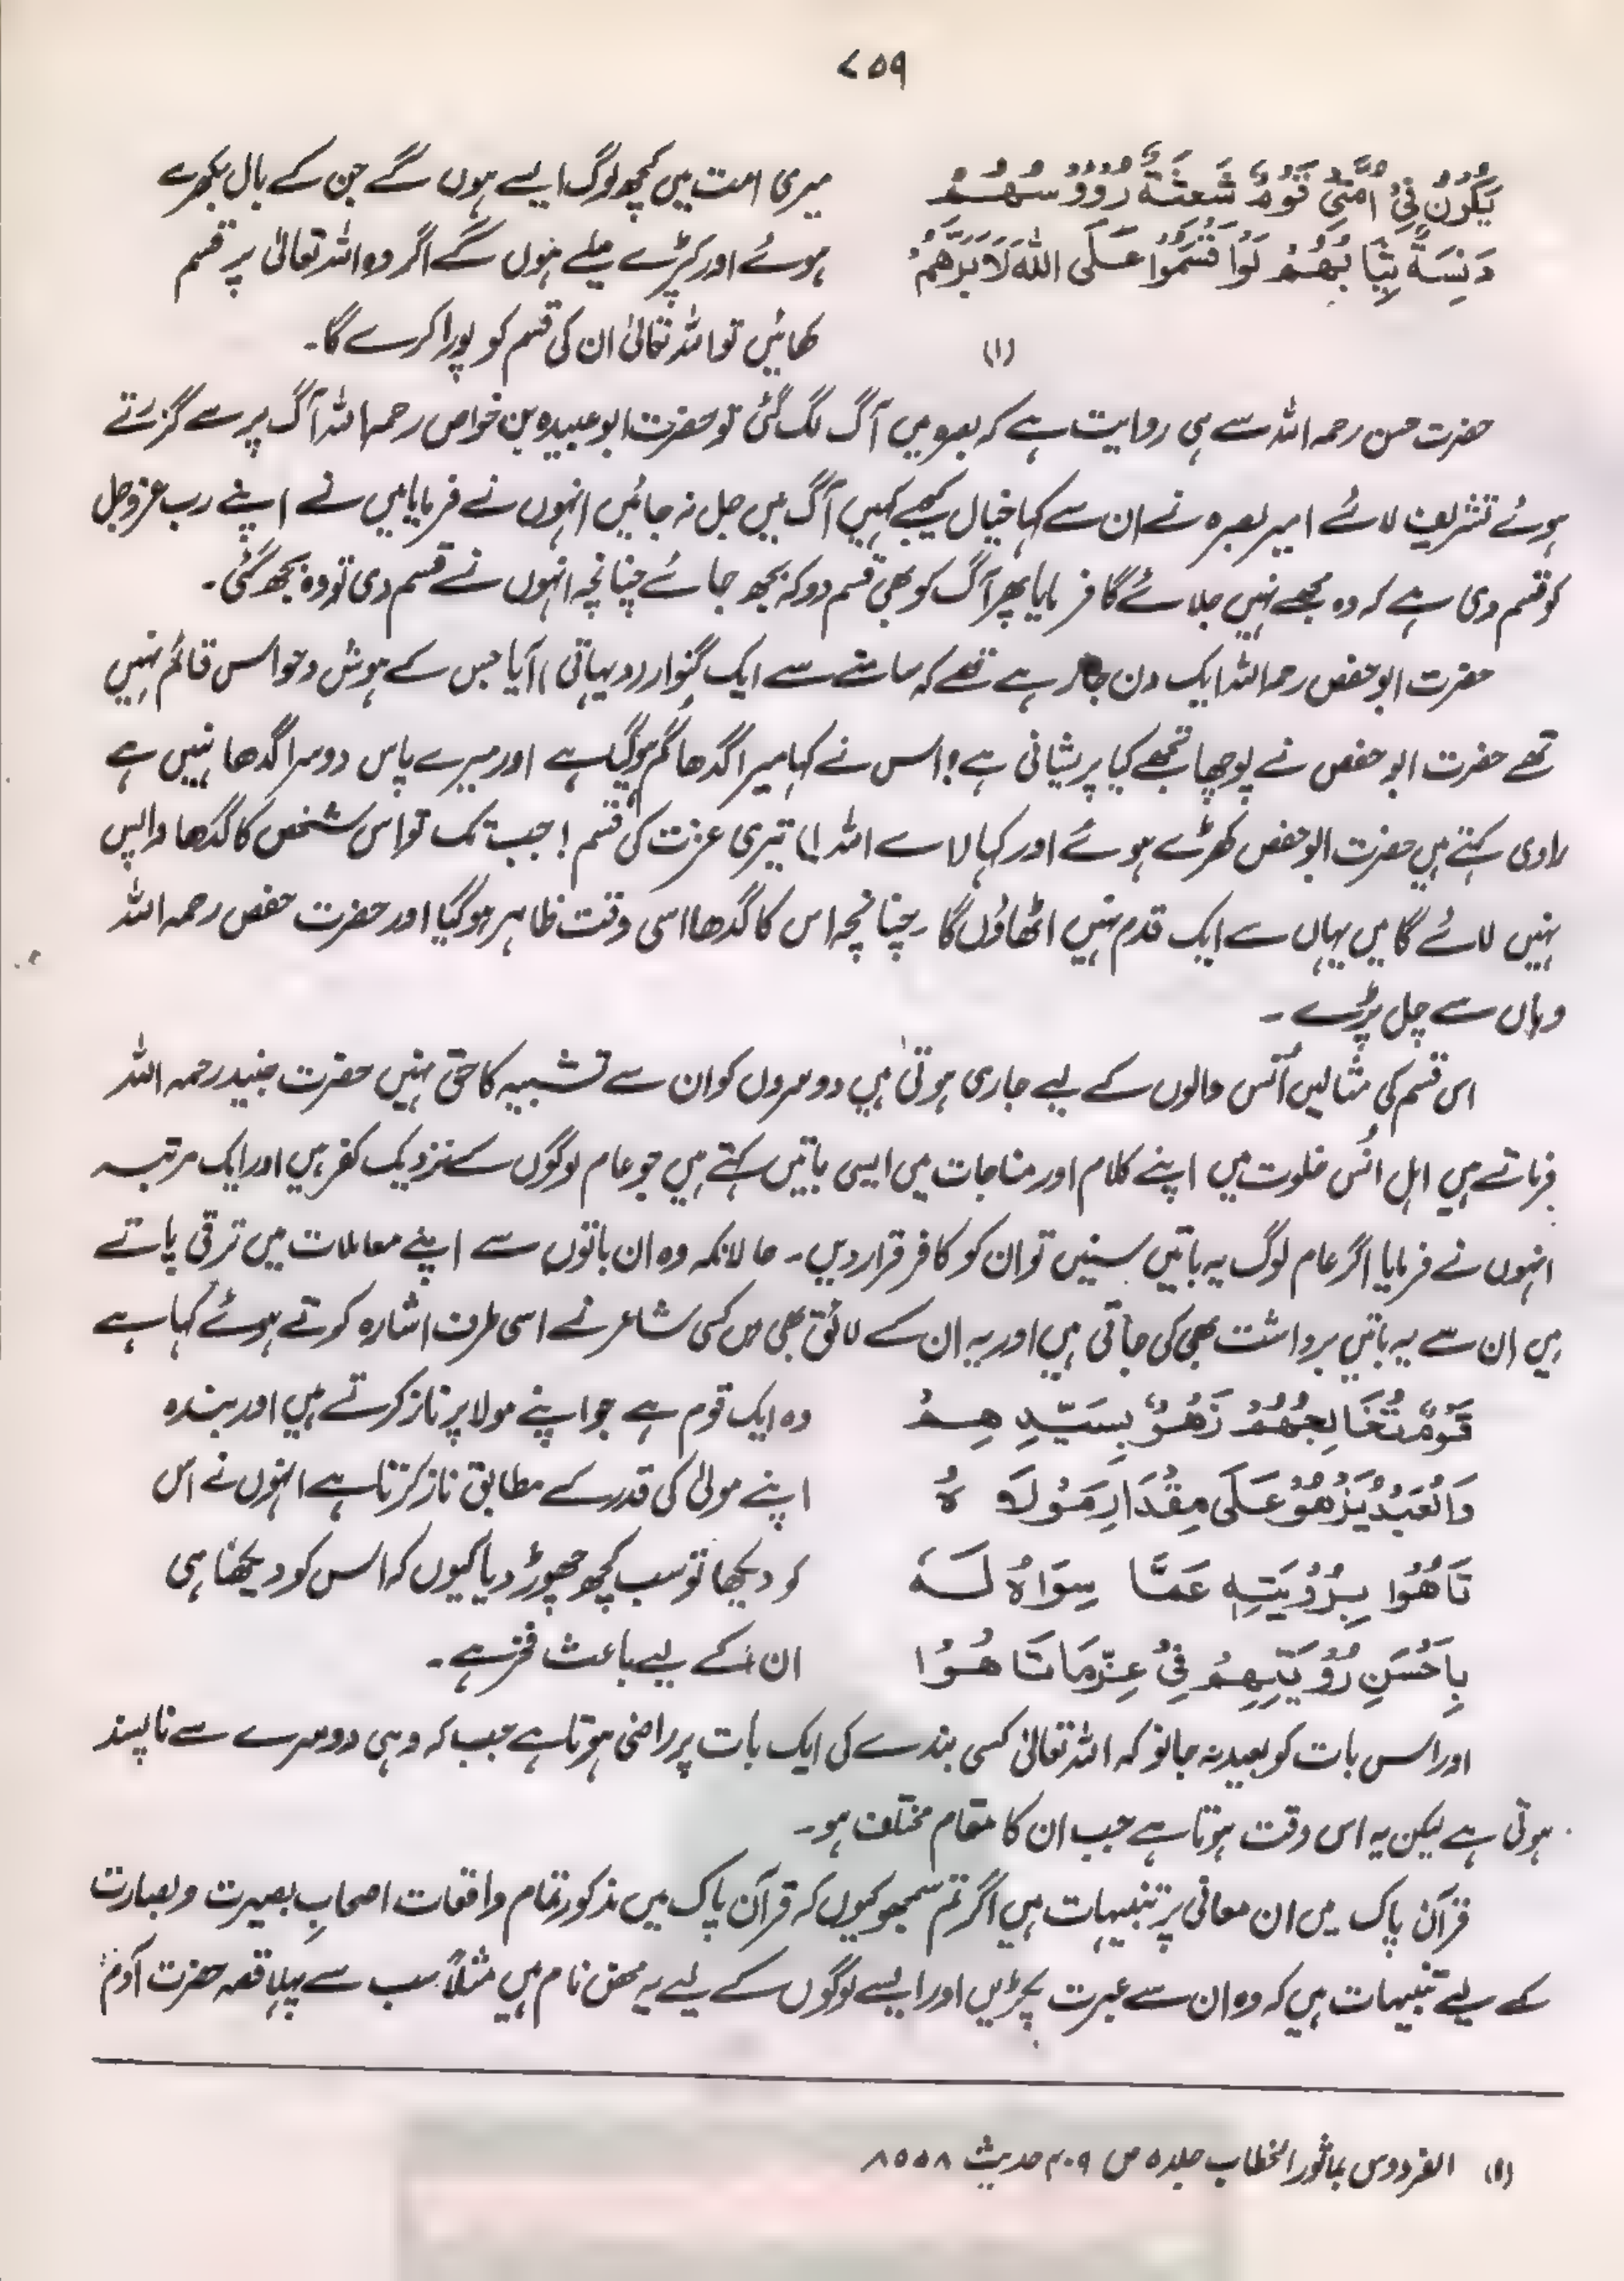 ۷۵۹
یَکُوْنُ فِیْ اُمَّتِیْ قَوْمٌ شَعِثَةٌ رُؤُوْسُهُمْ
دَنِسَةٌ ثِیَابُهُمْ لَوْ اَقْسَمُوْا عَلَی اللّٰهِ لَاَبَرَّهُمْ
(۱)
میری امت میں کچھ لوگ ایسے ہوں گے جن کے بال بکھرے
ہوئے اور کپڑے میلے ہوں گے اگر وہ اللہ تعالیٰ پر قسم
کھائیں تو اللہ تعالیٰ ان کی قسم کو پورا کرے گا۔
حضرت حسن رحمہ اللہ سے ہی روایت ہے کہ بصرہ میں آگ لگ گئی تو حضرت ابو عبیدہ بن خواص رحمہ اللہ آگ پر سے گزرتے
ہوئے تشریف لائے امیر بصرہ نے ان سے کہا خیال کیجیے کہیں آگ میں جل نہ جائیں انہوں نے فرمایا میں نے اپنے رب عزوجل
کو قسم دی ہے کہ وہ مجھے نہیں جلائے گا فرمایا پھر آگ کو بھی قسم دو کہ بجھ جائے چنانچہ انہوں نے قسم دی تو وہ بجھ گئی۔
حضرت ابو حفص رحمہ اللہ ایک دن جا رہے تھے کہ سامنے سے ایک گنوار (دیہاتی) آیا جس کے ہوش و حواس قائم نہیں
تھے حضرت ابو حفص نے پوچھا تجھے کیا پریشانی ہے؟ اس نے کہا میرا گدھا گم ہو گیا ہے اور میرے پاس دوسرا گدھا نہیں ہے
راوی کہتے ہیں حضرت ابو حفص کھڑے ہوئے اور کہا (اے اللہ!) تیری عزت کی قسم! جب تک تو اس شخص کا گدھا واپس
نہیں لائے گا میں یہاں سے ایک قدم نہیں اٹھاؤں گا۔ چنانچہ اس کا گدھا اسی وقت ظاہر ہو گیا اور حضرت حفص رحمہ اللہ
وہاں سے چل پڑے۔
اس قسم کی مثالیں اُنس والوں کے لیے جاری ہوتی ہیں دوسروں کو ان سے تشبیہ کا حق نہیں حضرت جنید رحمہ اللہ
فرماتے ہیں اہل انُس خلوت میں اپنے کلام اور مناجات میں ایسی باتیں کہتے ہیں جو عام لوگوں کے نزدیک کفر ہیں اور ایک مرتبہ
انہوں نے فرمایا اگر عام لوگ یہ باتیں سنیں تو ان کو کافر قرار دیں۔ حالانکہ وہ ان باتوں سے اپنے معاملات میں ترقی پاتے
ہیں ان سے یہ باتیں برداشت بھی کی جاتی ہیں اور یہ ان کے لائق بھی ہیں کسی شاعر نے اسی طرف اشارہ کرتے ہوئے کہا ہے
قَوْمٌ تُخَالِجُهُمْ زَهْوٌ بِسَیِّدِهِمْ
وَالْعَبْدُ یَزْهُوْ عَلَی مِقْدَارِ مَوْلَاهُ
تَاهُوْا بِرُؤْیَتِهٖ عَمَّا سِوَاهُ لَهٗ
بِاَحْسَنِ رُؤْیَتِهِمْ فِیْ عِزِّ مَا تَاهُوْا
وہ ایک قوم ہے جو اپنے مولا پر ناز کرتے ہیں اور بندہ
اپنے مولیٰ کی قدر کے مطابق ناز کرتا ہے انہوں نے اس
کو دیکھا تو سب کچھ چھوڑ دیا کیوں کہ اس کو دیکھنا ہی
ان کے لیے باعث فخر ہے۔
اور اس بات کو بعید نہ جانو کہ اللہ تعالیٰ کسی بندے کی ایک بات پر راضی ہوتا ہے جب کہ وہی دوسرے سے ناپسند
ہوتی ہے لیکن یہ اس وقت ہوتا ہے جب ان کا مقام مختلف ہو۔
قرآن پاک میں ان معانی پر تنبیہات ہیں اگر تم سمجھو کیوں کہ قرآن پاک میں مذکور تمام واقعات اصحابِ بصیرت و بصارت
کے لیے تنبیہات ہیں کہ وہ ان سے عبرت پکڑیں اور ایسے لوگوں کے لیے یہ محض نام ہیں مثلاً سب سے پہلا قصہ حضرت آدم
(۱) الفردوس بماثور الخطاب جلد ۵ ص ۴۰۹ حدیث ۸۵۵۸